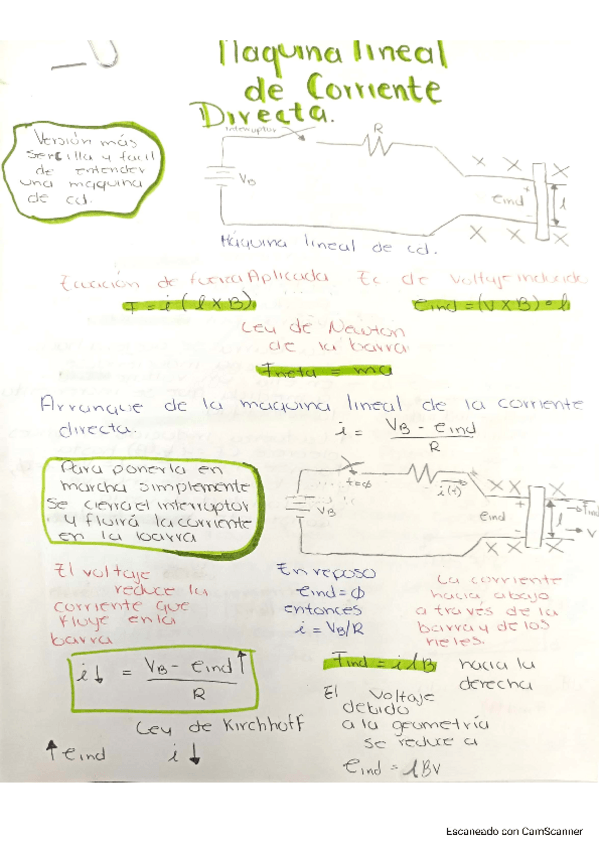 Maquina lineal
de Corriente
Directa.
Versión más
sencilla y facil
de entender
una maquina
de cd.
Interruptor
R
VB
eind
l
Máquina lineal de cd.
Ecuación de fuerza Aplicada
Ec. de voltaje inducido
F = i (l x B)
eind = (V x B) • l
Ley de Newton
de la barra
Fneta = ma
Arranque de la maquina lineal de la corriente
directa.
i = VB - eind / R
Para ponerla en
marcha simplemente
se cierra el interruptor
y fluirá la corriente
en la barra
t=ϕ
i(t)
VB
eind
l
Find
v
El voltaje
reduce la
corriente que
fluye en la
barra
En reposo
eind = ϕ
entonces
i = VB/R
La corriente
hacia abajo
a través de la
barra y de los
rieles.
i↓ = VB - eind↑ / R
Find = ilB hacia la
derecha
Ley de Kirchhoff
↑eind i↓
El voltaje
debido
a la geometría
se reduce a
eind = lBv
Escaneado con CamScanner